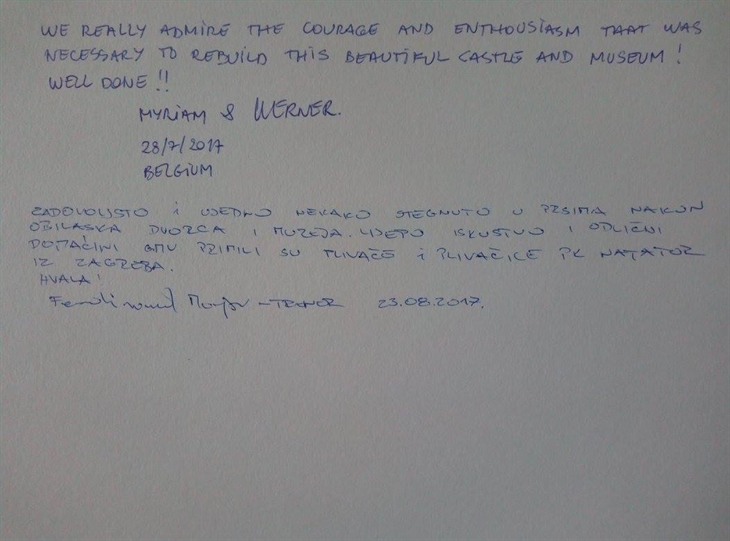 WE REALLY ADMIRE THE COURAGE AND ENTHOUSIASM THAT WAS
NECESSARY TO REBUILD THIS BEAUTIFUL CASTLE AND MUSEUM!
WELL DONE!!
MYRIAM & WERNER.
28/7/2017
BELGIUM
ZADOVOLJSTVO I UJEDNO NEKAKO STEGNUTO U PRSIMA NAKON
OBILASKA DVORCA I MUZEJA. LIJEPO ISKUSTVO I ODLIČNI
DOMAĆINI GMV PRIMILI SU PLIVAČE I PLIVAČICE PK NATATOR
IZ ZAGREBA.
HVALA!
Ferdinand - TRENER 23.08.2017.